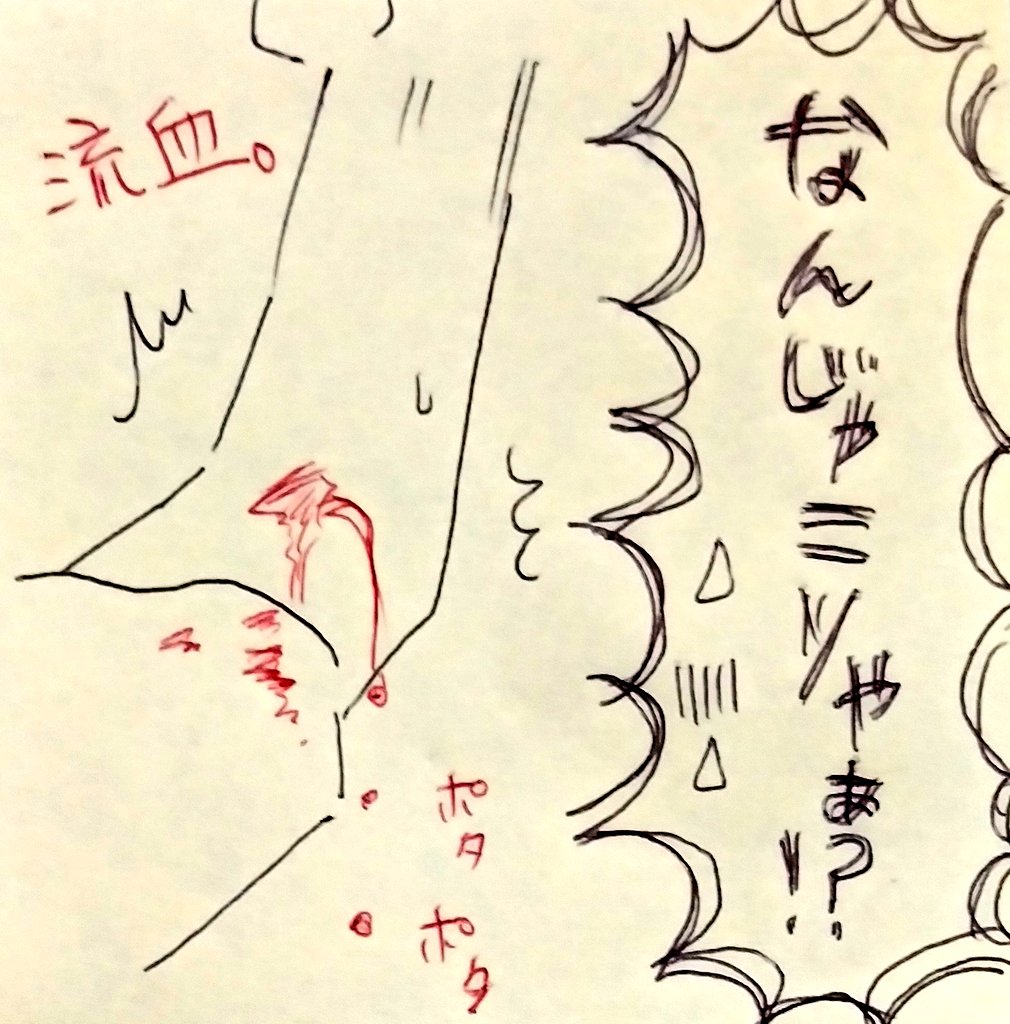 なんじゃこりゃぁ!?
流血。
ポタ
ポタ